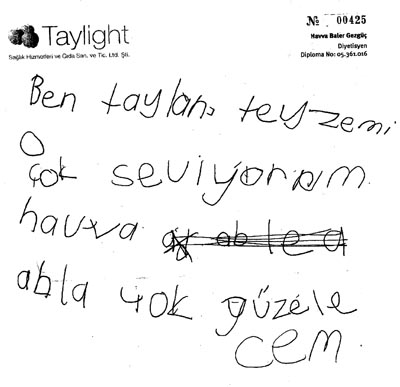 Taylight
Sağlık Hizmetleri ve Gıda San. ve Tic. Ltd. Şti.
№ 00425
Havva Baler Gezgüç
Diyetisyen
Diploma No: 05.361.016
Ben taylan teyzemi
O
çok seviyorum
havva
abla çok güzele
cem